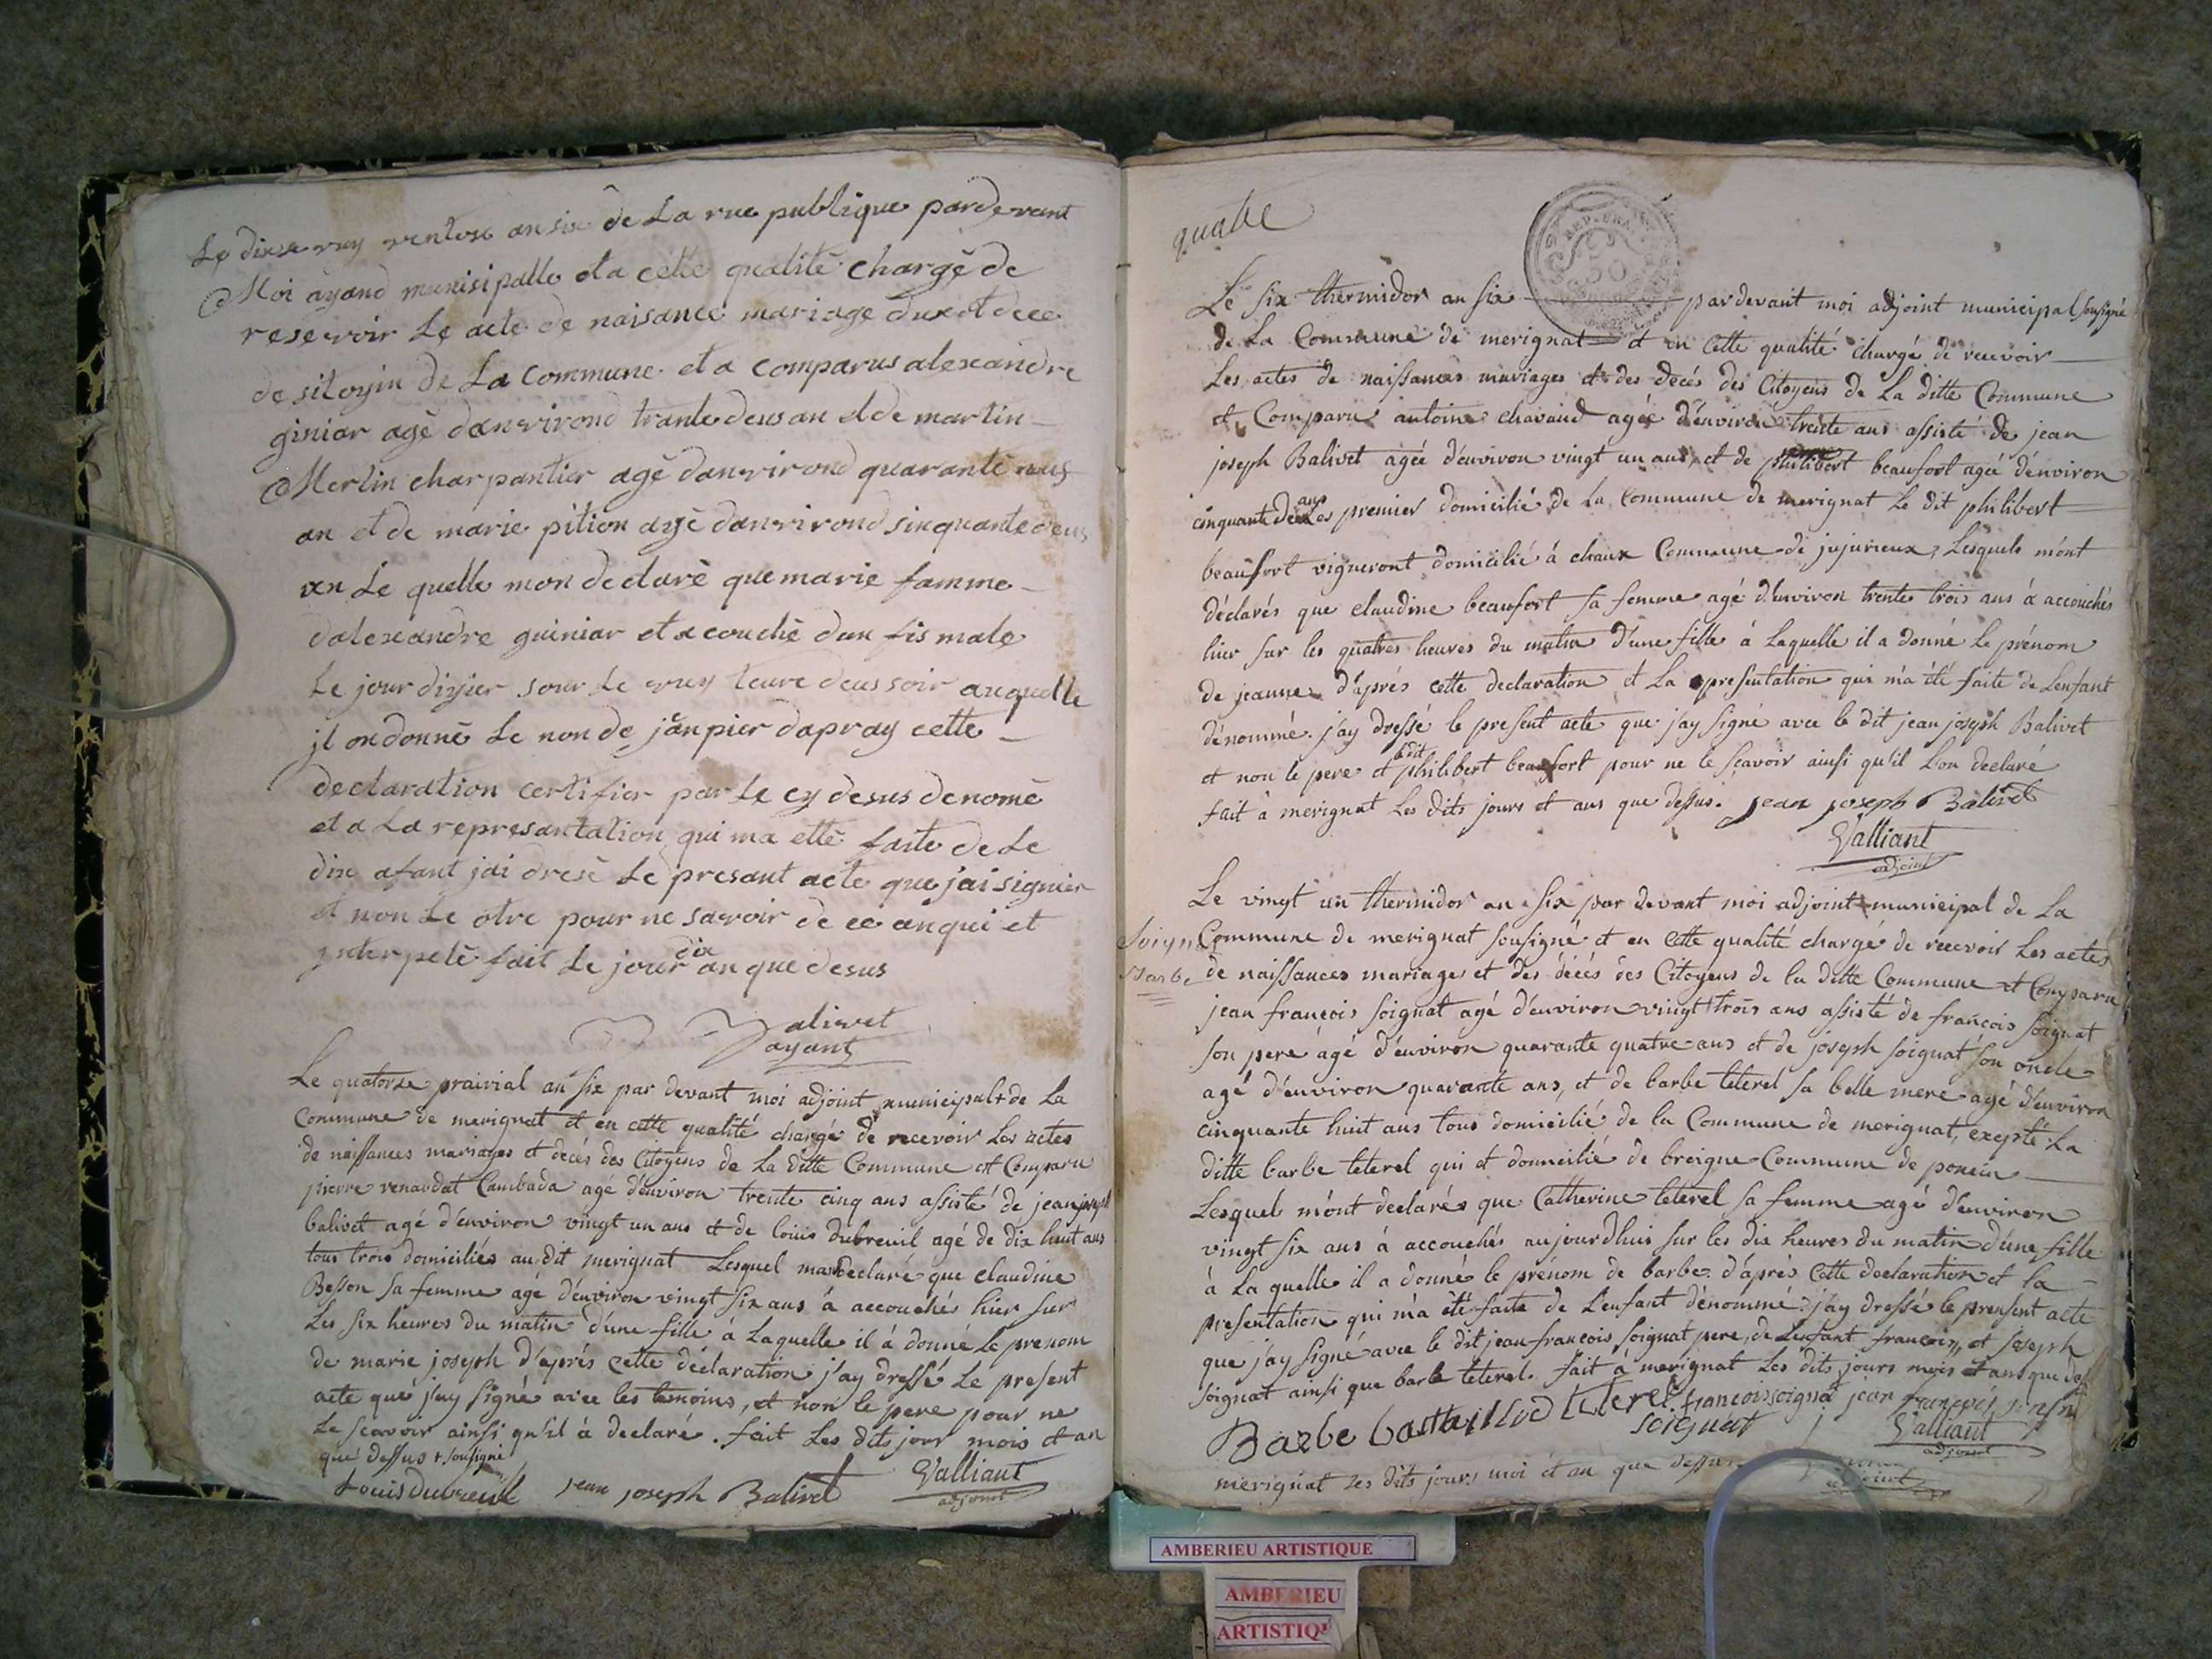 Le dixse vuy ventose an six de La rue publique pardevant
Moi ayand munisipalle et a cette qualité chargé de
reservoir Le acte de naisance mariage duxot dece
de sitoyin de La Commune et a comparus alexandre
giniar agé danvirond trante deus an et de martin
Merlin charpantier agé danvirond quarante neus
an et de marie pition agé danvirond sinquante deus
an Le quelle mon declaré que marie famme
dalexandre guiniar et a couché dun fis male
Le jour diyier sour Le vuy leure deus soir auquelle
il on donné Le non de jan pier dapray cette
declaration certifier par Le cy desus denomé
et a La represantation qui ma etté faite de Le
dix afant jai dresé Le presant acte que jai signier
et non Le otre pour ne savoir de ce anqui et
interpelé fait Le jour dix an que desus
Balivet
ayant
Le quatorze prairial an six par devant moi adjoint municipal + de La
Commune de merignat et en cette qualité chargé de recevoir Les actes
de naissances mariages et decés des Citoyens de La ditte Commune est Comparu
pierre renardat Cambada agé d'environ trente cinq ans assisté de jean joseph
balivet agé d'environ vingt un ans et de louis dubreuil agé de dix huit ans
tous trois domiciliés au dit merignat Lesquel ma declaré que claudine
Besson sa femme agé d'environ vingt six ans à accouché hier sur
Les six heures du matin d'une fille à Laquelle il à donné Le prenom
de marie joseph d'aprés cette déclaration j'ay dressé Le present
acte que j'ay signé avec les temoins, et non le pere pour ne
Le scavoir ainsi qu'il à declaré. fait Les dits jour mois et an
que dessus + sousigné
Louis dubreuil jean joseph Balivet Valliant
adjoint
quatre
Le six thermidor an six pardevant moi adjoint municipal sousigné
de La Commune de merignat et en cette qualité chargé de recevoir
Les actes de naissances mariages et des decés des Citoyens de La ditte Commune
et Comparu antoine chavaud agée d'environ trente ans assisté de jean
joseph Balivet agée d'environ vingt un ans, et de philibert beaufort agée d'environ
cinquante deux ans Les premier domicilié de La Commune de merignat Le dit philibert
beaufort vigneront domicilié à chaux Commune de jujurieux, Lesquels m'ont
déclarés que claudine beaufort sa femme agé d'environ trente trois ans à accouchés
hier sur les quatres heures du matin d'une fille à Laquelle il a donné Le prénom
de jeanne d'aprés cette declaration et La presentation qui m'a été faite de Lenfant
dénommé. j'ay dressé le present acte que j'ay signé avec le dit jean joseph Balivet
et non le pere et ledit philibert beaufort pour ne le scavoir ainsi qu'il L'on declaré
fait à merignat Les dits jours et ans que dessus. jean joseph Balivet
Valliant
adjoint
Le vingt un thermidor an six par devant moi adjoint municipal de La
Commune de merignat sousigné et en cette qualité chargé de recevoir Les actes
de naissances mariages et des décés des Citoyens de la ditte Commune et Comparu
jean françois soignat agé d'environ vingt trois ans assisté de françois soignat
son pere agé d'environ quarante quatre ans et de joseph soignat son oncle
agé d'environ quarante ans, et de barbe teterel sa belle mere agé d'environ
cinquante huit ans tous domicilié de la Commune de merignat, exepté La
ditte barbe teterel qui et domicilié de breigne Commune de poncin
Lesquel m'ont declarés que Catherine teterel sa femme agé d'environ
vingt six ans à accouchés aujourdhui sur les dix heures du matin d'une fille
à La quelle il a donné le prénom de barbe. d'aprés cette declaration et La
presentation qui m'a été faite de L'enfant dénommé j'ay dressé le prensent acte
que j'ay signé avec le dit jean françois soignat pere, de Lenfant françois, et joseph
soignat ainsi que barbe teterel. fait à merignat Les dits jours mois et ans que des
Barbe teterel francois soignat jean françois
soignat Valliant
adjoint
merignat Les dits jours moi et an que dessus